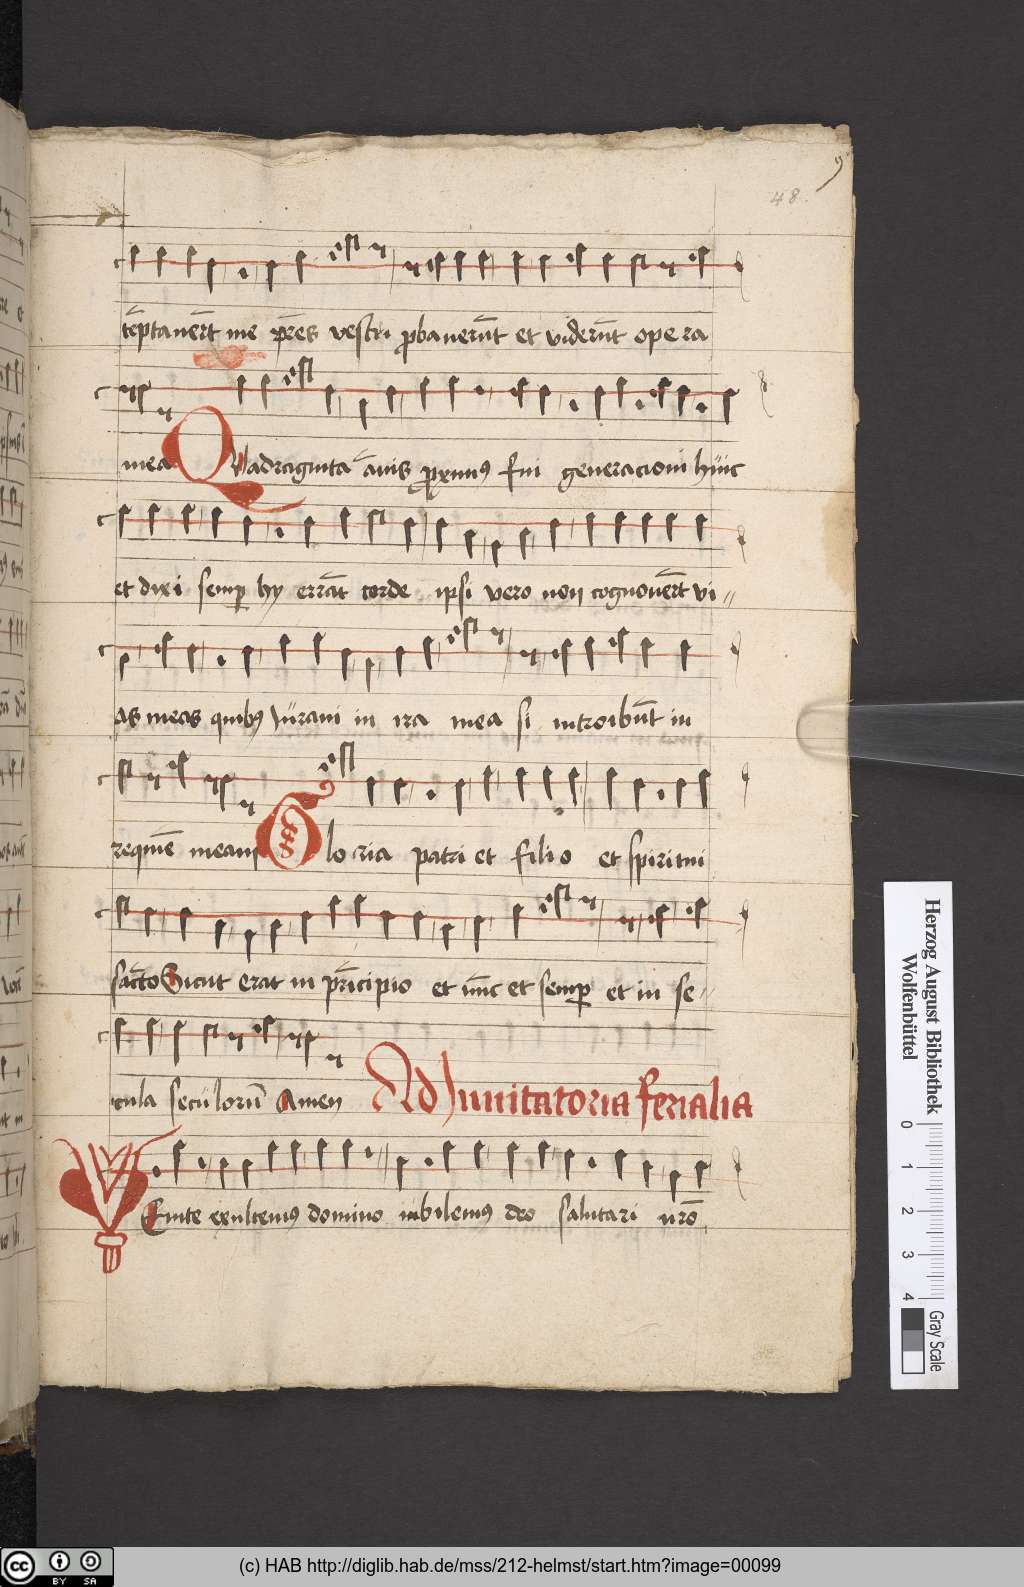 48.
te᷃ptaueru᷃t me p᷃res vestri ꝓbaueru᷃t et videru᷃t opera
mea Quadraginta a᷃nis ꝓximꝰ fui generacioni huic
et dixi semꝑ hy erra᷃t corde ipsi vero non cognoueru᷃t vi⸗
as meas quibꝰ iuraui in ira mea si introibu᷃t in
requie᷃ meam Gloria patri et filio et spiritui
sa᷃cto Sicut erat in pri᷃ncipio et nu᷃c et semꝑ et in se⸗
cula seculoru᷃ Amen Ad Inuitatoria ferialia
VEnite exultemꝰ domino iubilemꝰ deo salutari n᷃ro
Herzog August Bibliothek
Wolfenbüttel
0 1 2 3 4
Gray Scale
(c) HAB http://diglib.hab.de/mss/212-helmst/start.htm?image=00099
cc BY SA